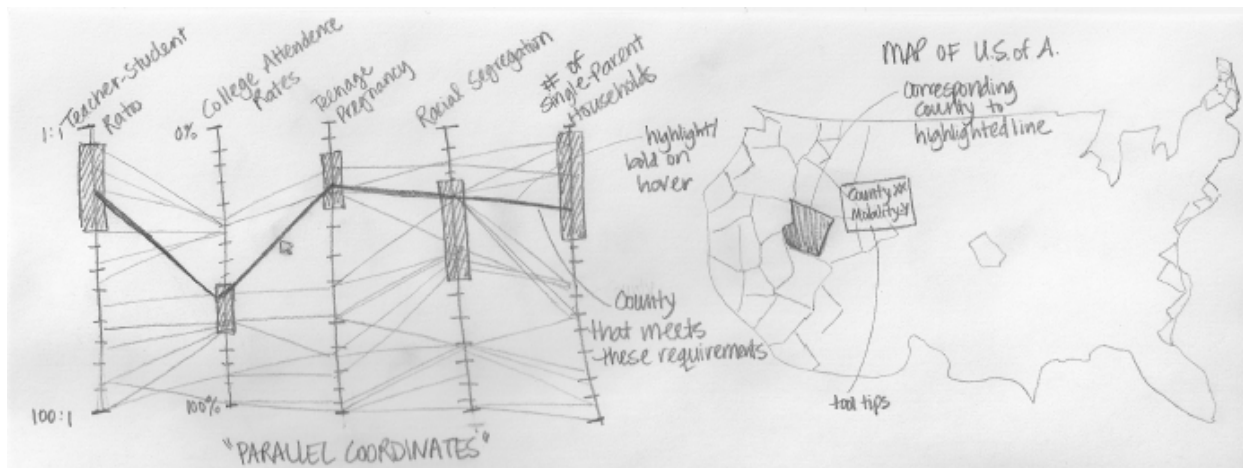 Teacher-Student
Ratio
College Attendence
Rates
Teenage
Pregnancy
Racial Segregation
# of
Single-Parent
Households
1:1
0%
100:1
100%
highlight/
bold on
hover
County
that meets
these requirements
"PARALLEL COORDINATES"
MAP OF U.S. of A.
corresponding
county to
highlighted line
County
Mobility
tool tips